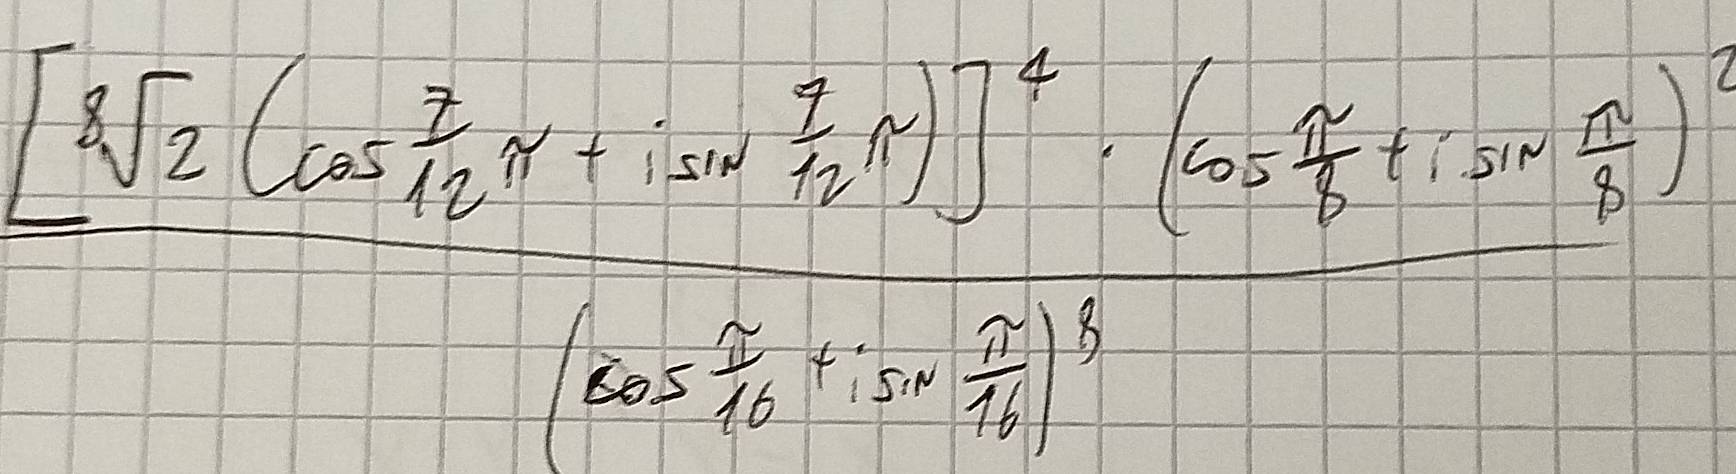 [⁸√2 (cos 7/12 π + i sin 7/12 π)]⁴ · (cos π/8 + i sin π/8)²
(cos π/16 + i sin π/16)⁸